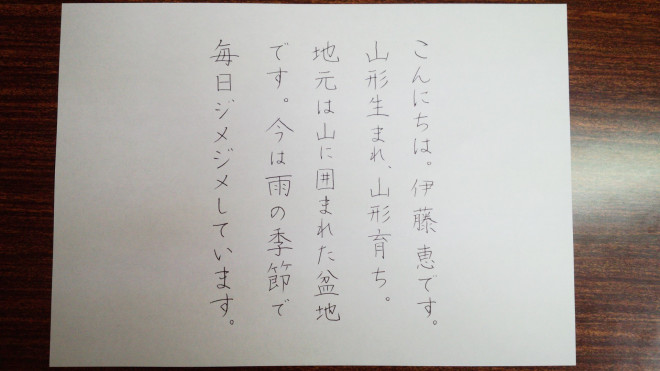 こんにちは。伊藤恵です。
山形生まれ、山形育ち。
地元は山に囲まれた盆地
です。今は雨の季節で
毎日ジメジメしています。